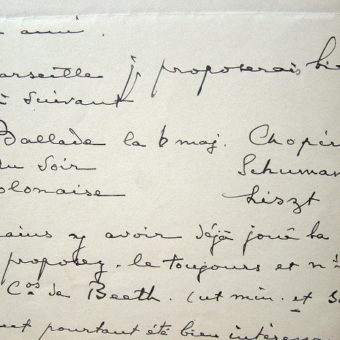 ami.
arseille je proposerais bie
suivant
Ballade la b maj. Chopin
du Soir Schuman
olonaise Liszt
ains y avoir déjà joué la
proposez-le toujours et n
Cos de Beeth. (ut min. et s
pourtant été bien intéressa